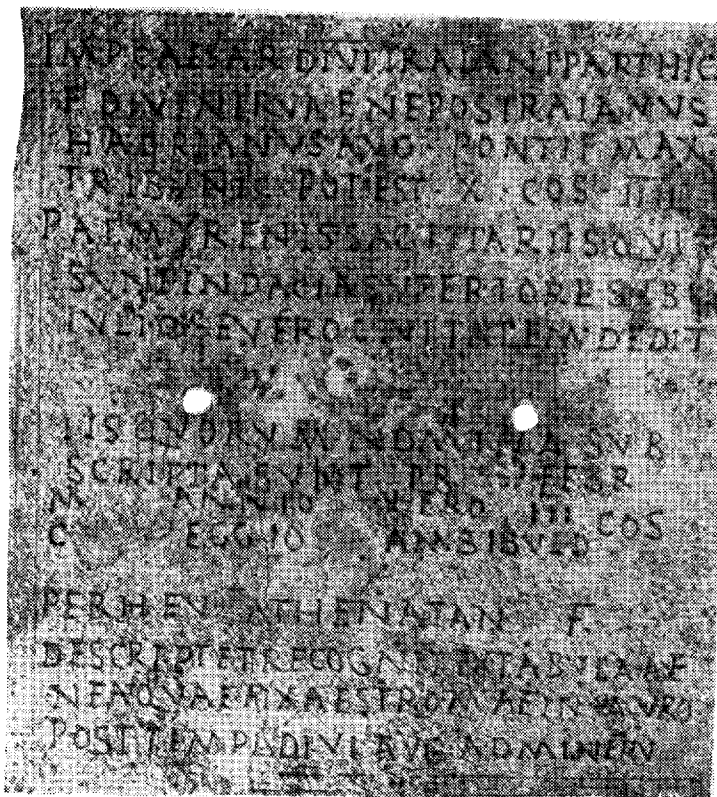 IMP CAESAR DIVI TRAIANI PARTHIC
F DIVI NERVAE NEPOS TRAIANVS
HADRIANVS AVG · PONTIF MAX
TRIBVNIC · POTEST · X · COS · III
PALMYRENIS SAGITTARIIS QVI
SVNT IN DACIA SVPERIORE SVB
IVLIO SEVERO CIVITATEM DEDIT
IIS QVORVM NOMINA SVB
SCRIPTA SVNT PR FEBR
M ANNIO VERO III COS
C EGGIO AMBIBVLO
PERHEV ATHENATAN F
DESCRIPT ET RECOGNIT EX TABVLA AE
NEA QVAE FIXA EST ROMAE IN MVRO
POST TEMPL DIVI AVG AD MINERV